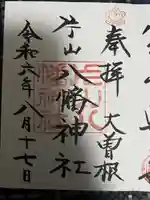 奉拝 大曽根
片山八幡神社
令和六年八月十七日